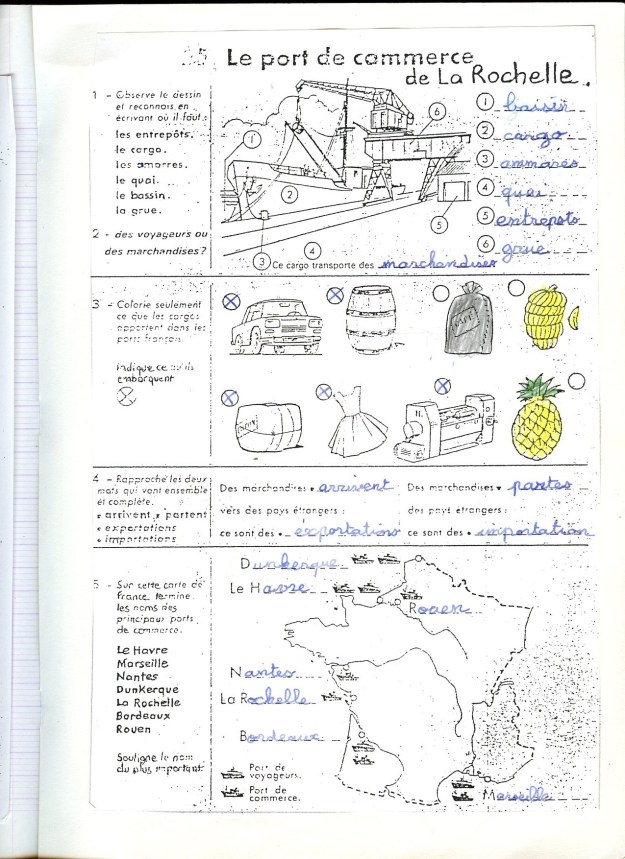 Le port de commerce
de La Rochelle.
1 - Observe le dessin
et reconnais en
écrivant où il faut :
les entrepôts.
le cargo.
les amarres.
le quai.
le bassin.
la grue.
2 - des voyageurs ou
des marchandises?
1
2
3
4
5
6
1 bassin
2 cargo
3 ammares
4 quai
5 entrepots
6 grue
Ce cargo transporte des marchandises
3 - Colorie seulement
ce que les cargos
apportent dans les
ports français.
indique ce qu'ils
embarquent
4 - Rapproche les deux
mots qui vont ensemble
et complète.
• arrivent • partent
• exportations
• importations
Des marchandises • arrivent
vers des pays étrangers :
ce sont des • exportations
Des marchandises • partes
des pays étrangers :
ce sont des • importation
5 - Sur cette carte de
France termine
les noms des
principaux ports
de commerce.
Le Havre
Marseille
Nantes
Dunkerque
La Rochelle
Bordeaux
Rouen
Souligne le nom
du plus important.
Dunkerque
Le Havre
Rouen
Nantes
La Rochelle
Bordeaux
Marseille
Port de
voyageurs.
Port de
commerce.